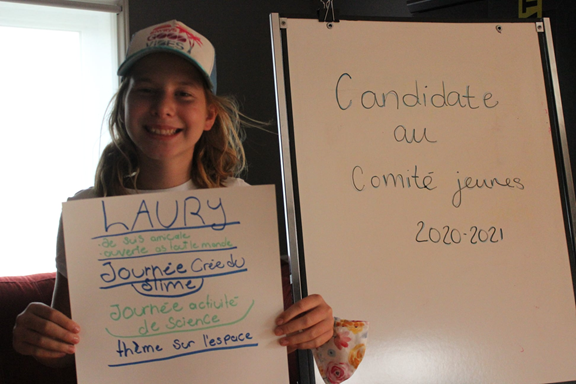 GOOD
VIBES
LAURY
-Je suis amicale
-ouverte as tout le monde
Journée Crée du
Slime
Journée activité
de Science
thème sur l'espace
Candidate
au
Comité jeunes
2020-2021